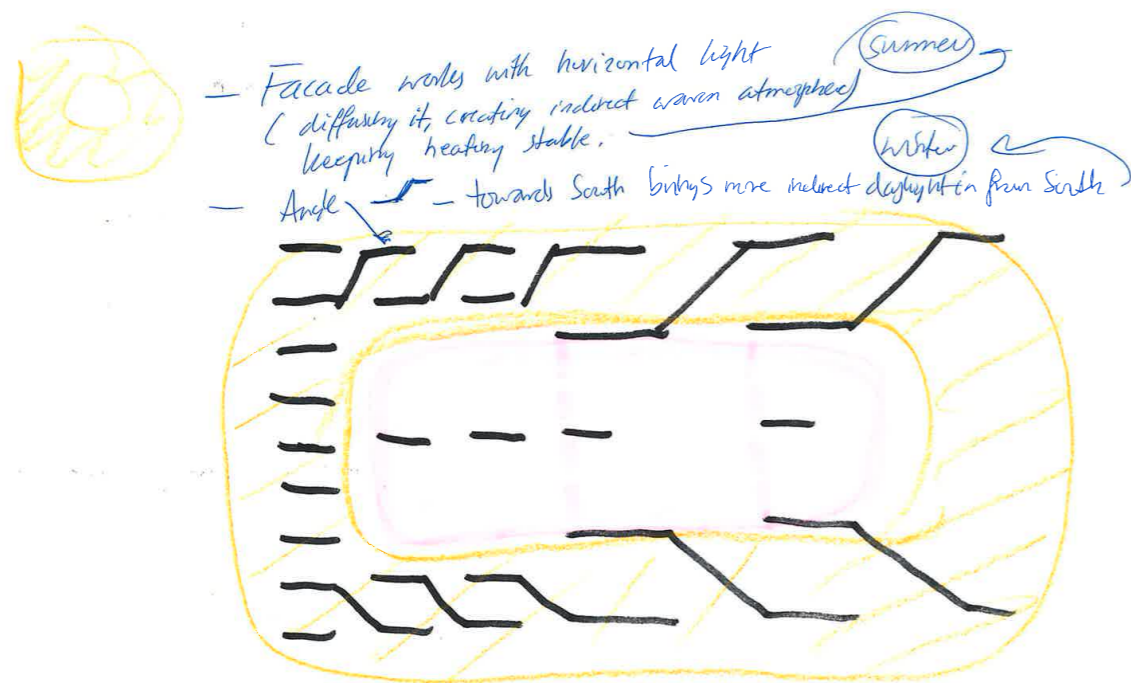 summer
— Facade works with horizontal light
( diffusing it, creating indirect warm atmosphere)
keeping heating stable.
winter
— Angle — towards South brings more indirect daylight in from South